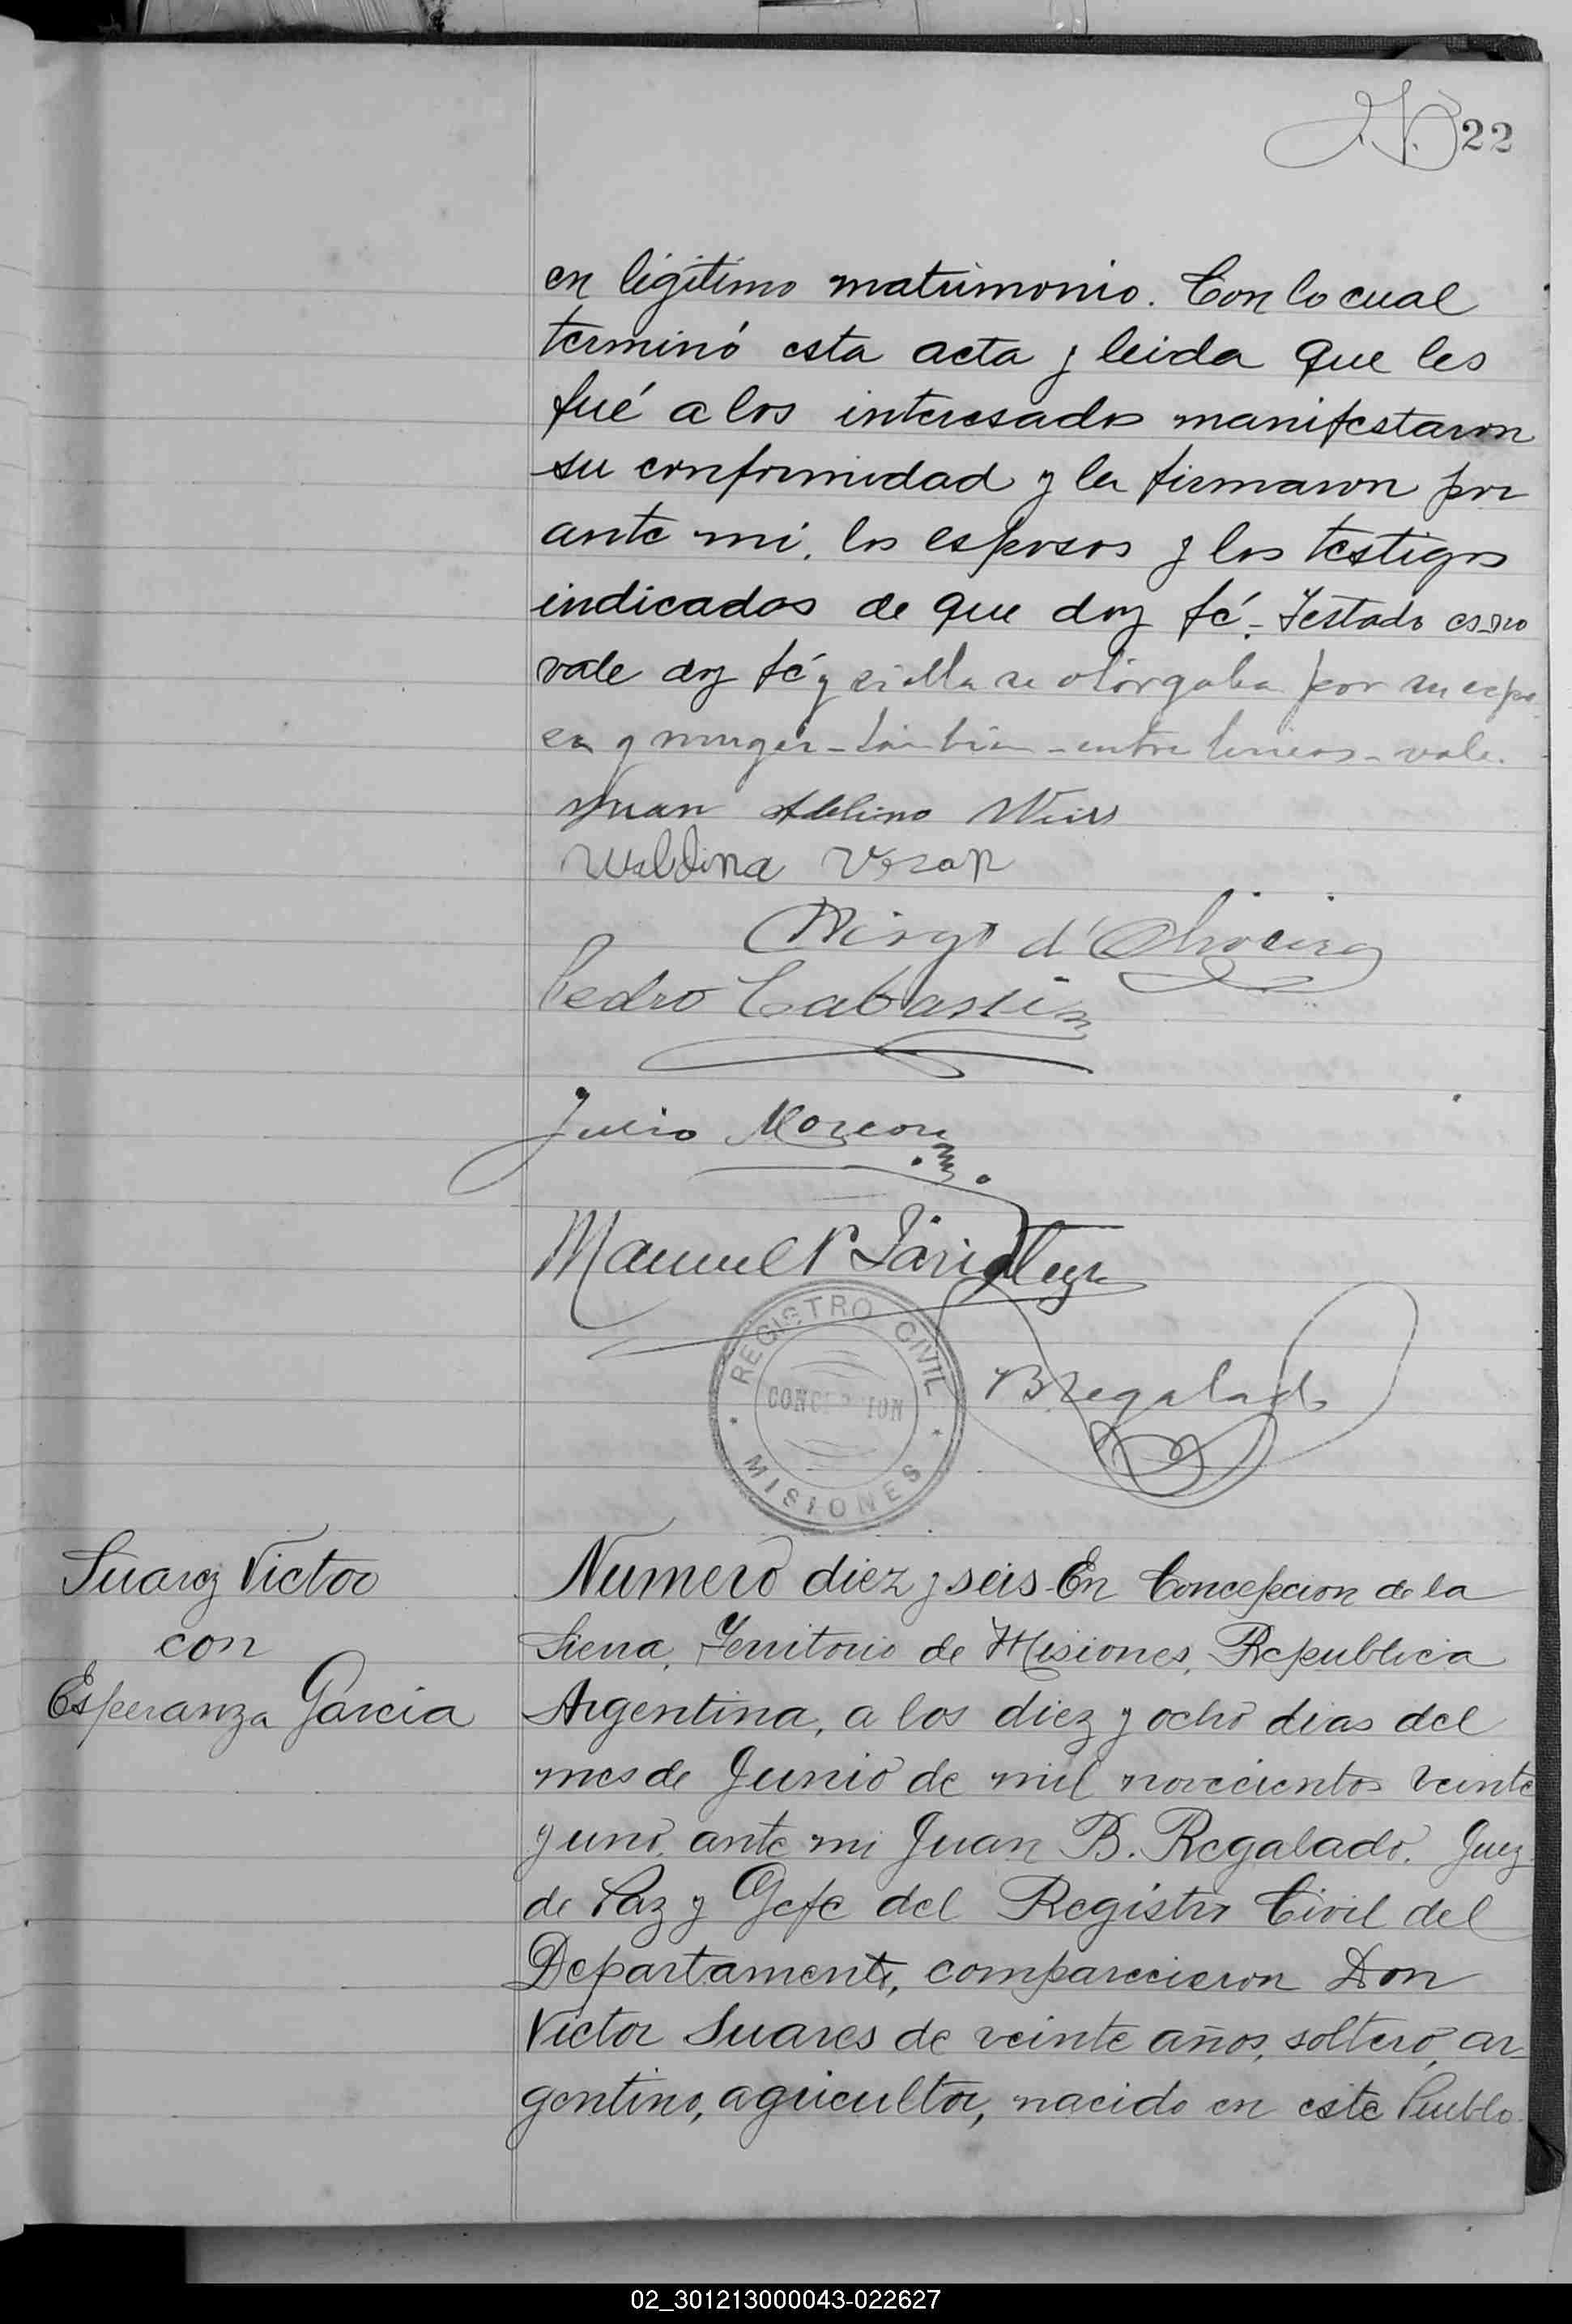 22
en ligitimo matrimonio. Con lo cual
terminó esta acta y leida que les
fué a los interesados manifestaron
su conformidad y la firmaron por
ante mi, los esposos y los testigos
indicados de que doy fé.- Testado es-no
vale doy fé y si ella se otorgaba por su espo
sa y muger - tambien - entre lineas - vale.
Juan Adelino Weiss
Waldina Veron
d'Oliveira
Pedro Cabastin
Julio
Manuel P.
REGISTRO CIVIL
CONCEPCION
MISIONES
BRegalado
Suarez Victor
con
Esperanza Garcia
Numero diez y seis En Concepcion de la
Sierra, Territorio de Misiones, Republica
Argentina, a los diez y ocho dias del
mes de Junio de mil novecientos veinte
y uno, ante mi Juan B. Regalado, Juez
de Paz y Gefe del Registro Civil del
Departamento, comparecieron Don
Victor Suares de veinte años, soltero, ar-
gentino, agricultor, nacido en este Pueblo
02_301213000043-022627